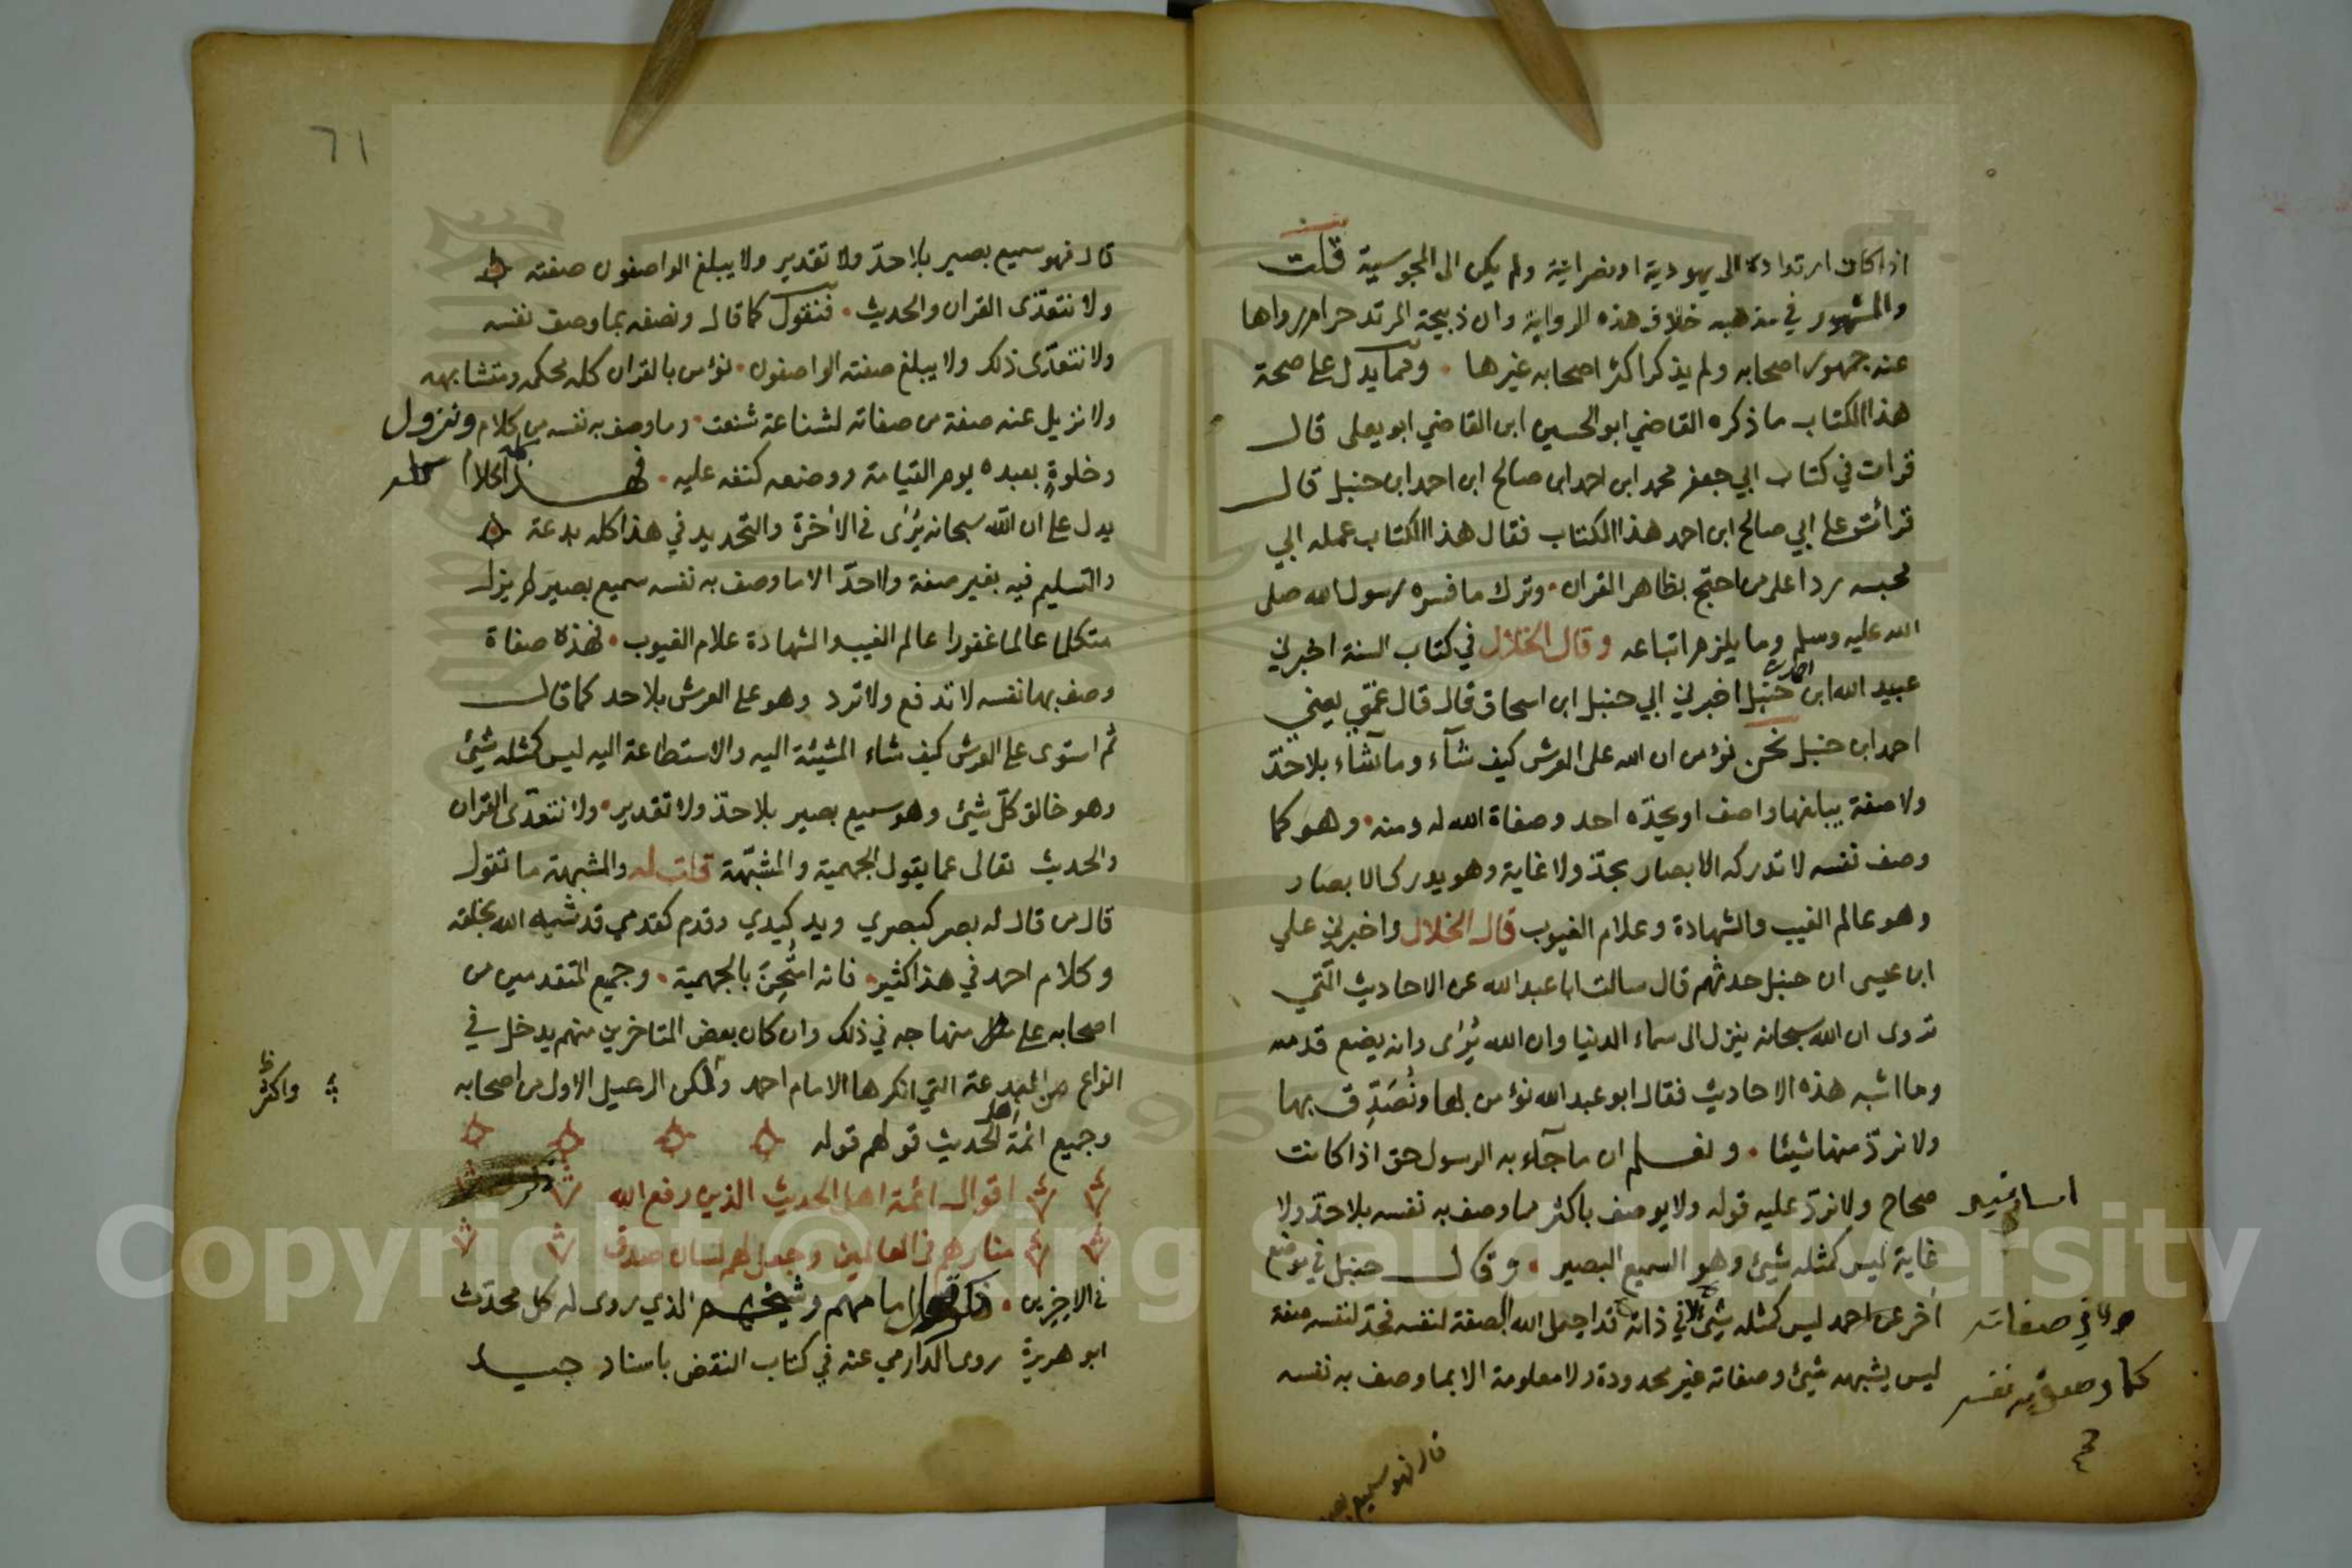 اذا كان ارتداده الى يهودية او نصرانية ولم يكن الى المجوسية قلت
والمشهور في مذهبه خلاف هذه الرواية وان ذبيحة المرتد حرام رواها
عنه جمهور اصحابه ولم يذكر اكثر اصحابه غيرها ٠ ومما يدل على صحة
هذا الكتاب ما ذكره القاضي ابو الحسين ابن القاضي ابو يعلى قال
قرات في كتاب ابي جعفر محمد ابن احمد ابن صالح ابن احمد ابن حنبل قال
قرأت على ابي صالح ابن احمد هذا الكتاب فقال هذا الكتاب عمله ابي
محبسه ردا على من احتج بظاهر القران ٠ وترك ما فسره رسول الله صلى
الله عليه وسلم وما يلزم اتباعه وقال الخلال في كتاب السنة اخبرني
عبيد الله ابن حنبل اخبرني ابي حنبل ابن اسحاق قال قال عمي يعني
احمد ابن حنبل نحن نؤمن ان الله على العرش كيف شآء وما شاء بلا حدّ
ولا صفة يبلغها واصف او يحدّه احد وصفاة الله له ومنه ٠ وهو كما
وصف نفسه لا تدركه الابصار بحدّ ولا غاية وهو يدرك الابصار
وهو عالم الغيب والشهادة وعلام الغيوب قال الخلال واخبرني علي
ابن عيسى ان حنبل حدثهم قال سالت ابا عبد الله عن الاحاديث التي
تروى ان الله سبحانه ينزل الى سماء الدنيا وان الله يُرَى وانه يضع قدمه
وما اشبه هذه الاحاديث فقال ابو عبد الله نؤمن بها ونُصَدِّق بها
ولا نردّ منها شيئا ٠ ونعلم ان ما جآء به الرسول حق اذا كانت
اسانيد
صحاح ولا نردّ عليه قوله ولا يوصف باكثر مما وصف به نفسه بلا حدّ ولا
غاية ليس كمثله شيئ وهو السميع البصير ٠ وقال حنبل في موضع
اخر عن احمد ليس كمثله شيئ في ذاته قد اجمل الله الصفة لنفسه فحدّ لنفسه صفة
ولا في صفاته
كما وصف به نفسه
ليس يشبهه شيئ وصفاته غير محدودة ولا معلومة الا بما وصف به نفسه
قال فهو سميع بصير
٦١
قال فهو سميع بصير بلا حدّ ولا تقدير ولا يبلغ الواصفون صفته
ولا نتعدّى القران والحديث ٠ فنقول كما قال ونصفه بما وصف نفسه
ولا نتعدّى ذلك ولا يبلغ صفته الواصفون ٠ نؤمن بالقران كله محكمه ومتشابهه
ولا نزيل عنه صفة من صفاته لشناعة شنعت ٠ وما وصف به نفسه من كلام ونزول
وخلوةٍ بعبده يوم القيامة ووضعه كنفه عليه ٠ فهذا كله
يدل على ان الله سبحانه يُرَى في الاخرة والتحديد في هذا كله بدعة
والتسليم فيه بغير صفة ولا حدّ الا ما وصف به نفسه سميع بصير لم يزل
متكلما عالما غفورا عالم الغيب والشهادة علام الغيوب ٠ فهذه صفاة
وصف بها نفسه لا تدفع ولا ترد وهو على العرش بلا حد كما قال
ثم استوى على العرش كيف شاء المشيئة اليه والاستطاعة اليه ليس كمثله شيئ
وهو خالق كلّ شيئ وهو سميع بصير بلا حدّ ولا تقدير ٠ ولا نتعدّى القران
والحديث تعالى عما يقول الجهمية والمشبّهة قلت له والمشبهة ما تقول
قال من قال له بصر كبصري ويد كيدي وقدم كقدمي قد شبه الله بخلقه
وكلام احمد في هذا كثير ٠ فانه امتُحِنَ بالجهمية ٠ وجميع المتقدمين من
اصحابه على منهاجه في ذلك وان كان بعض المتاخرين منهم يدخل في
انواع من البدعة التي انكرها الامام احمد ولكن الرعيل الاول من اصحابه
واكثر
وجميع ائمة اهل الحديث قولهم قوله
اقوال ائمة اهل الحديث الذين رفع الله
منارهم في العالمين وجعل لهم لسان صدق
في الاخرين ٠ امامهم وشيخهم الذي روى له كل محدّث
ابو هريرة روى الدارمي عنه في كتاب النقض باسناد جيد